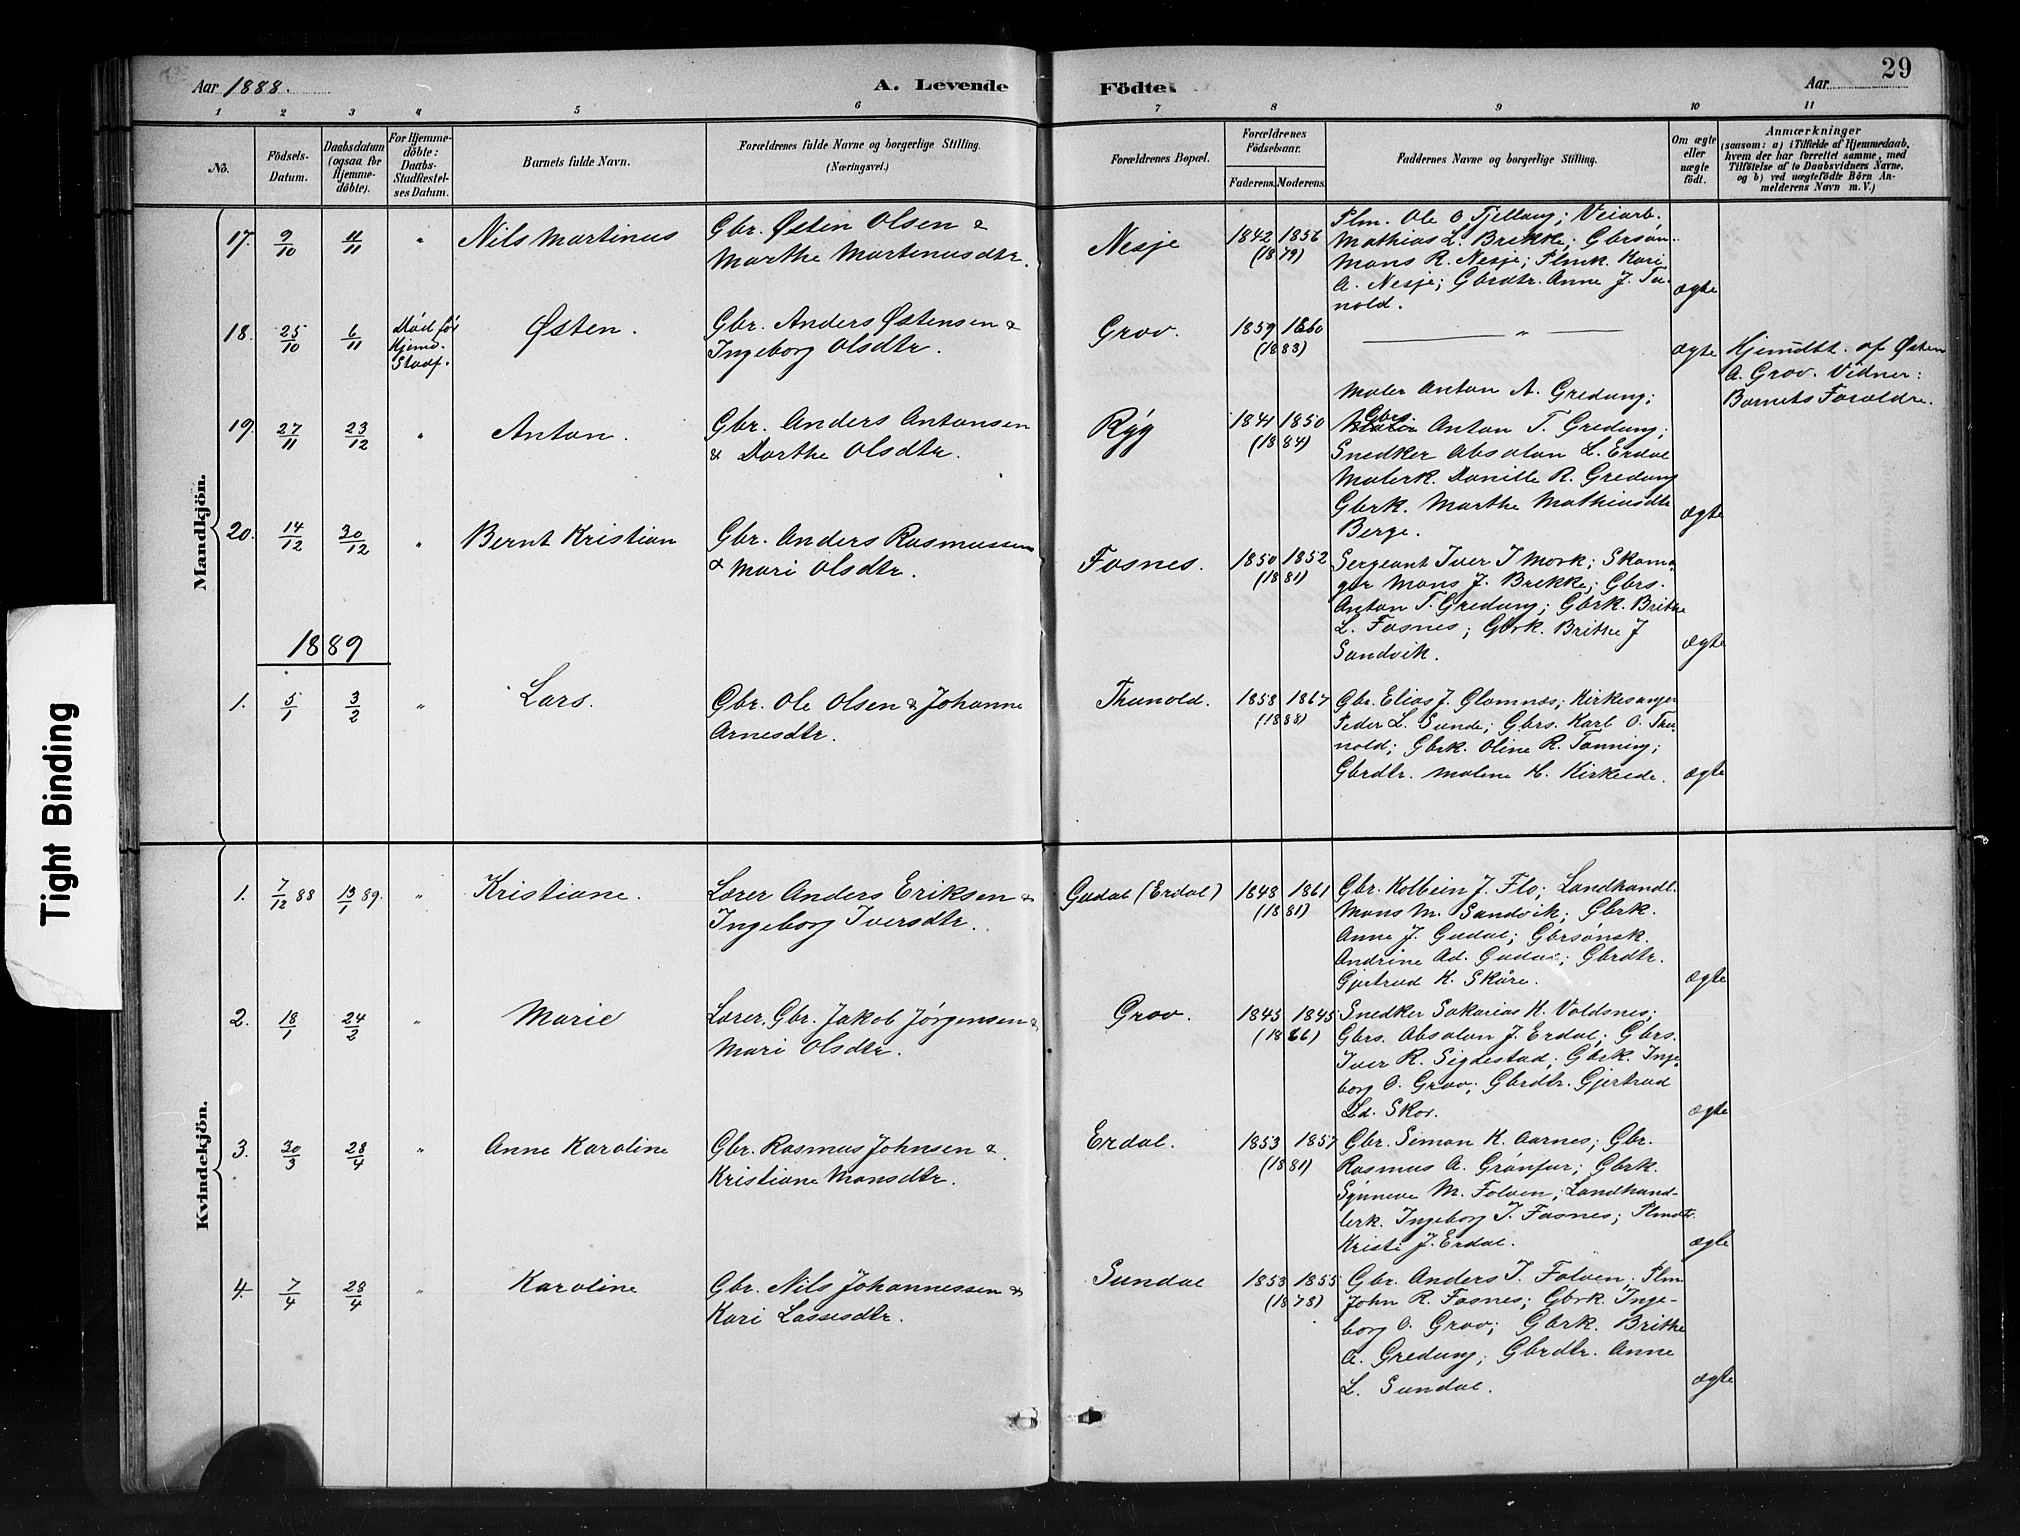 Aar 1888.
A. Levende
Födte.
Aar
29
1 2 3 4 5 6 7 8 9 10 11
No.
Födsels-
Datum.
Daabsdatum
(ogsaa for
Hjemme-
döbte).
For Hjemme-
döbte:
Daabs-
Stadfæstel-
ses Datum.
Barnets fulde Navn.
Forældrenes fulde Navne og borgerlige Stilling.
(Næringsvei.)
Forældrenes Bopæl.
Forældrenes
Födselsaar.
Faderens. Moderens.
Faddernes Navne og borgerlige Stilling.
Om ægte
eller
uægte
födt.
Anmærkninger
(saasom: a) i Tilfælde af Hjemmedaab,
hvem der har forrettet samme, med
Tilföielse af to Daabsvidners Navne,
og b) ved uægtefödte Börn An-
melderens Navn m. V.)
Mandkjön.
17. 9/10 11/11 " Nils Martinus
Gbr. Østen Olsen &
Marthe Martenusdtr.
Nesje
1842 1856
(1879)
Plm. Ole O Tjellaug; Veiarb.
Mathias L. Brekke; Gbrsøn
Mons R. Nesje; Plmk. Kari
A. Nesje; Gbrdtr. Anne J. Tu-
nold.
ægte
18. 25/10 6/11
Død før
Hjemd.
Stadf.
Østen.
Gbr. Anders Østensen &
Ingeborg Olsdtr.
Grov.
1859 1860
(1883)
"
ægte
Hjemdbt. af Østen
A. Grov. Vidner:
Barnets Forældre.
19. 27/11 23/12 " Anton.
Gbr. Anders Antonsen
& Dorthe Olsdtr.
Ryg
1841 1850
(1884)
Maler Anton A. Gredung;
Gbrs.
Anton T. Gredung;
Snedker Absalon L. Erdal
Malerk. Danille R. Gredung
Gbrk. Marthe Mathiasdtr
Berge.
ægte
20. 14/12 30/12 " Bernt Kristian
Gbr. Anders Rasmussen
& Mari Olsdtr.
Fosnes.
1850 1852
(1881)
Sergeant Iver I Mork; Skoma-
ger Mons J. Brekke; Gbrs.
Anton T. Gredung; Gbrk. Brithe
L. Fosnes; Gbrk. Brithe J
Sandvik.
ægte
1889
1. 5/1 3/2 " Lars.
Gbr. Ole Olsen & Johanne
Arnesdtr.
Thunold.
1858 1867
(1888)
Gbr. Elias J. Glomnæs; Kirkesanger
Peder L. Sunde; Gbrs. Karl O. Thu-
nold; Gbrk. Oline R. Tonning;
Gbrdtr. Malene H. Kirkeide.
ægte
Kvindekjön.
1. 7/12 88 13/1 89. " Kristiane.
Lærer Anders Eriksen &
Ingeborg Iversdtr.
Gudal (Erdal)
1848 1861
(1881)
Gbr. Kolbein J. Flo; Landhandl.
Mons M. Sandvik; Gbrk.
Anne J. Gudal; Gbrsønsk.
Andrine Ad. Gudal; Gbrdtr.
Gjertrud K. Skåre.
ægte
2. 18/1 24/2 " Marie
Lærer. Gbr. Jakob Jørgensen &
Mari Olsdtr.
Grov.
1845 1845
(1866)
Snedker Sakarias K. Voldsnes;
Gbrs. Absalon J. Erdal; Gbrs.
Iver R. Sigdestad; Gbrk. Inge-
borg O. Grov; Gbrdtr. Gjertrud
Ld. Skor.
ægte
3. 30/3 28/4 " Anne Karoline
Gbr. Rasmus Johnsen &
Kristiane Monsdtr.
Erdal.
1853 1857
(1881)
Gbr. Simon K. Aarnes; Gbr.
Rasmus A. Grønfur; Gbrk.
Synneve M. Folven; Landhand-
lerk. Ingeborg I. Fosnes; Plmdtr.
Kristi J. Erdal.
ægte
4. 7/4 28/4 " Karoline
Gbr. Nils Johannessen &
Kari Lassesdtr.
Sundal
1853 1855
(1878)
Gbr. Anders I. Folven; Plm
John R. Fosnes; Gbrk. Inge-
borg O. Grov; Gbrk. Brithe
A. Gredung; Gbrdtr. Anne
L. Sundal.
ægte
Tight Binding